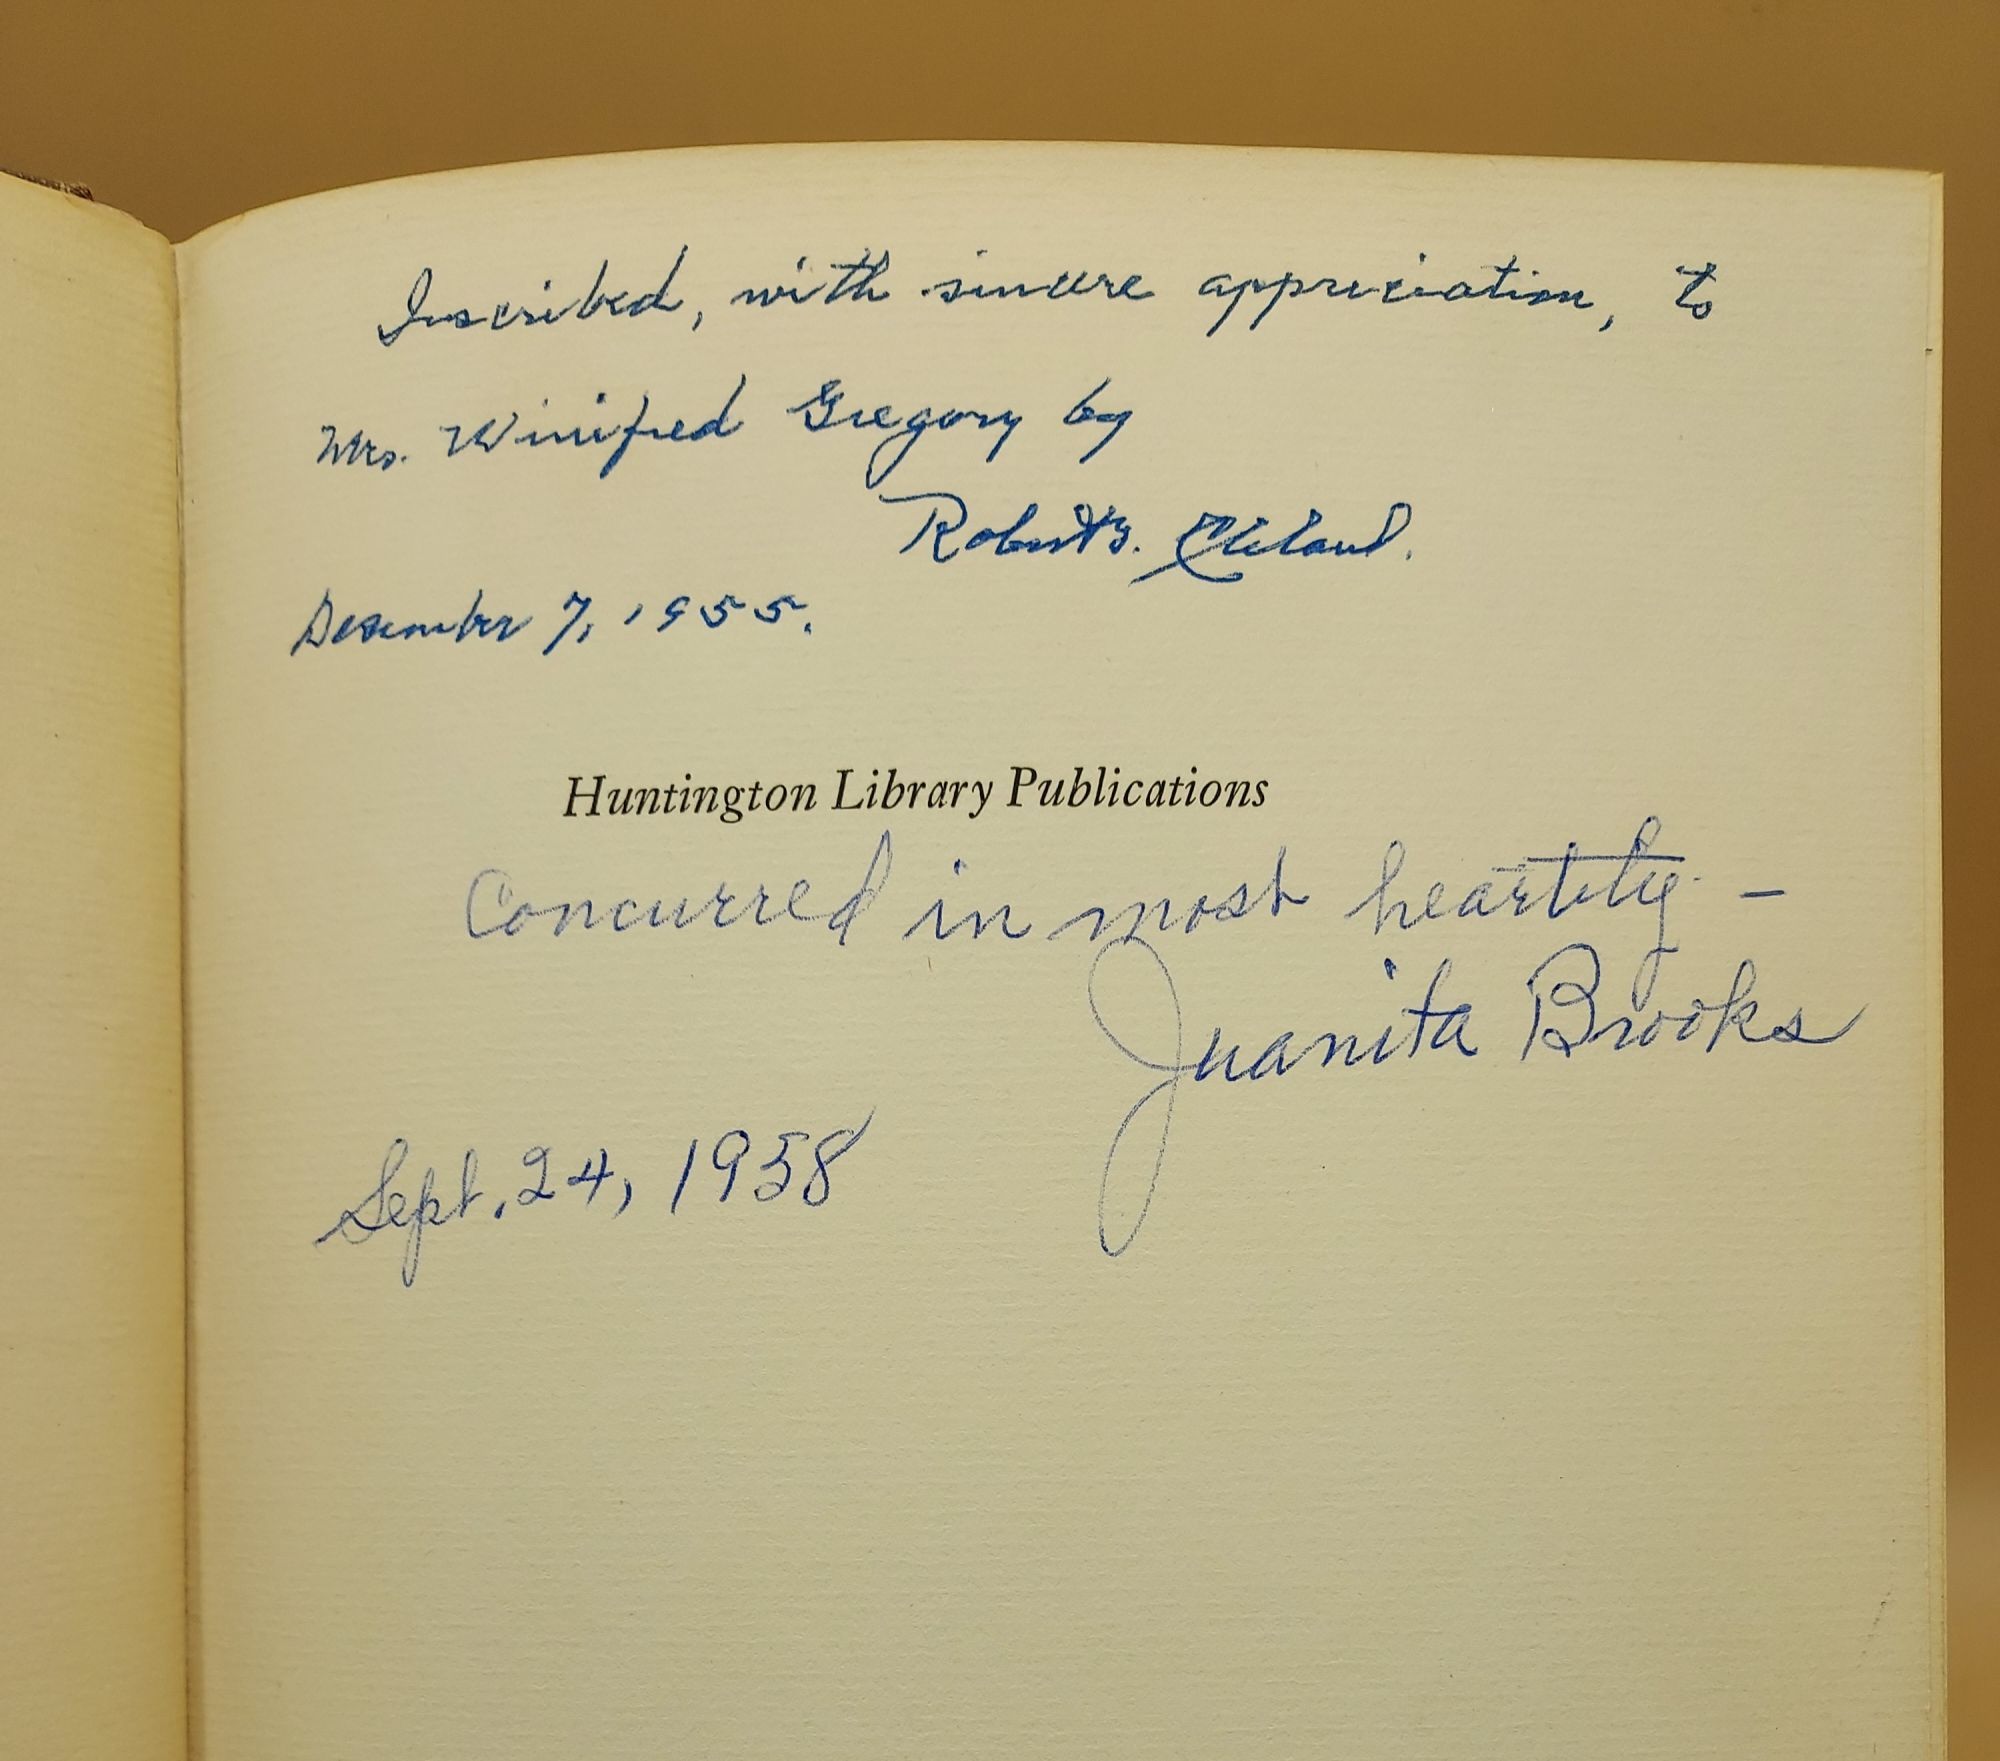 Inscribed, with sincere appreciation, to
Mrs. Winifred Gregory by
Robert G. Cleland.
December 7, 1955.
Huntington Library Publications
Concurred in most heartily. —
Juanita Brooks
Sept. 24, 1958